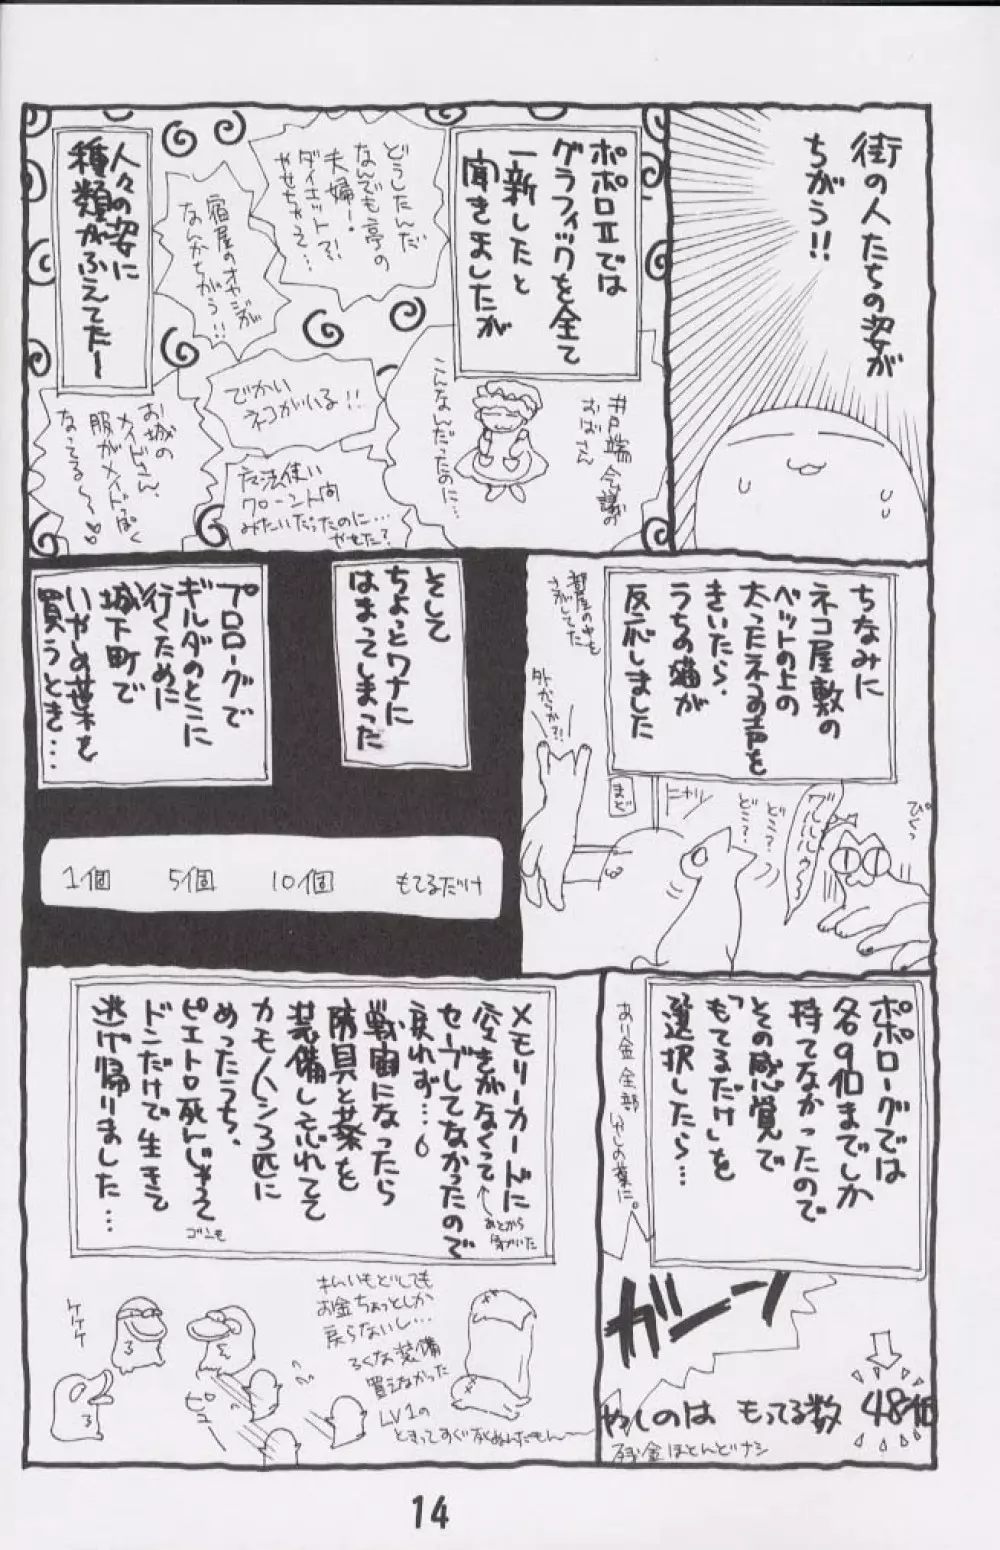 街の人たちの姿が
ちがう!!
ポポロⅡでは
グラフィックを全て
一新したと
聞きましたが
井戸端会議の
おばさん
こんなんだったのに…
どうしたんだ
なんでも亭の
夫婦ー!
ダイエット?!
やせちゃって…
宿屋のオヤジが
なんかちがう!!
でかい
ネコがいる!!
魔法使い
クローン人間
みたいだったのに…
やめた?
人々の姿に
種類がふえてたー
お城の
メイドさん、
服がメイドっぽく
なってる〜〜♡♡
ちなみに
ネコ屋敷の
ベットの上の
太ったネコの声を
きいたら、
うちの猫が
反応しました
ぴくっ
グルルルゥ〜
どこ?
どこ?
ニャリ
まど
外からか?!
部屋の中も
さがしてた
そして
ちょっとワナに
はまってしまった
プロローグで
ギルダのとこに
行くために
城下町で
いやしの葉を
買うとき…
1個 5個 10個 もてるだけ
ポポローグでは
各9個までしか
持てなかったので
その感覚で
「もてるだけ」を
選択したら…
あり金全部
いやしの葉に。
ガーン
やしのは もってる数 48個
残金ほとんどナシ
メモリーカードに
空きがなくって
←あとから
気がついた
セーブしてなかったので
戻れず…
戦闘になったら
防具と葉を
装備し忘れてて
カモノハシ3匹に
めったうち、
ピエトロ死んじゃって
ゴンも
ドンだけで生きて
逃げ帰りました…
ケケケ
お金ちょっとしか
戻らないし…
ろくな装備
買えなかった
LV1の
14